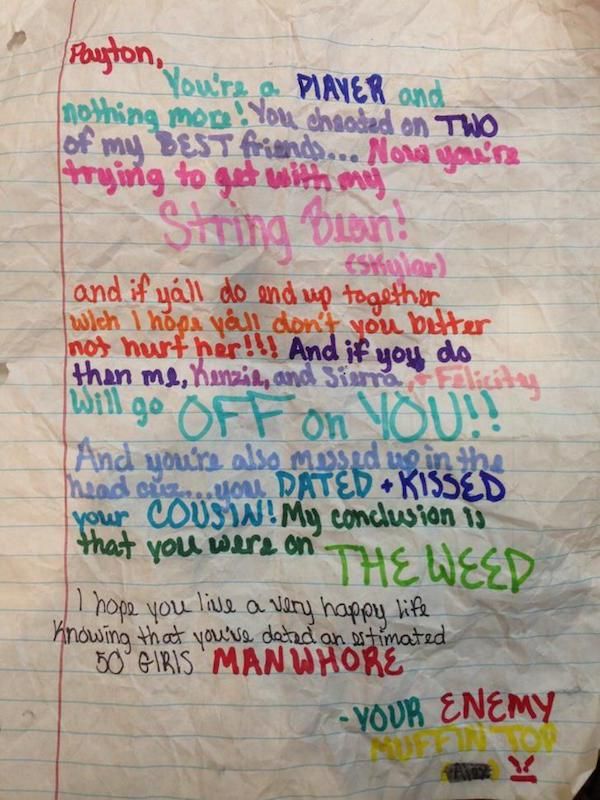 Payton,
You're a PlAYER and
nothing more! You cheated on TWO
of my BEST friends... Now you're
trying to get with my
String Bean!
(Skylar)
and if yáll do end up together
wich I hope yáll don't you better
not hurt her!!! And if you do
then me, Kenzie, and Sierra, + Felicity
Will go OFF on YOU!!
And you're also messed up in the
head cuz...you DATED + KISSED
your COUSIN! My conclusion is
that you were on THE WEED
I hope you live a very happy life
Knowing that youv'e dated an estimated
50 GIRlS MAN WHORE
-YOUR ENEMY
MUFFIN TOP